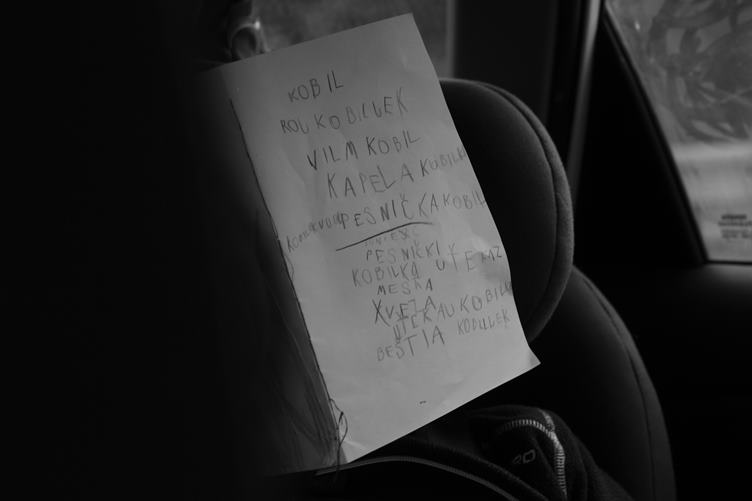 KOBIL
ROU KOBILLEK
VILM KOBIL
KAPELA KOBILK
PESNIČKA KOBIL
PESNIČKI
KOBILKA UTEKAZ
MEŠKA
XVEZA
UTEKAU KOBILK
BEŠTIA KOBULEK